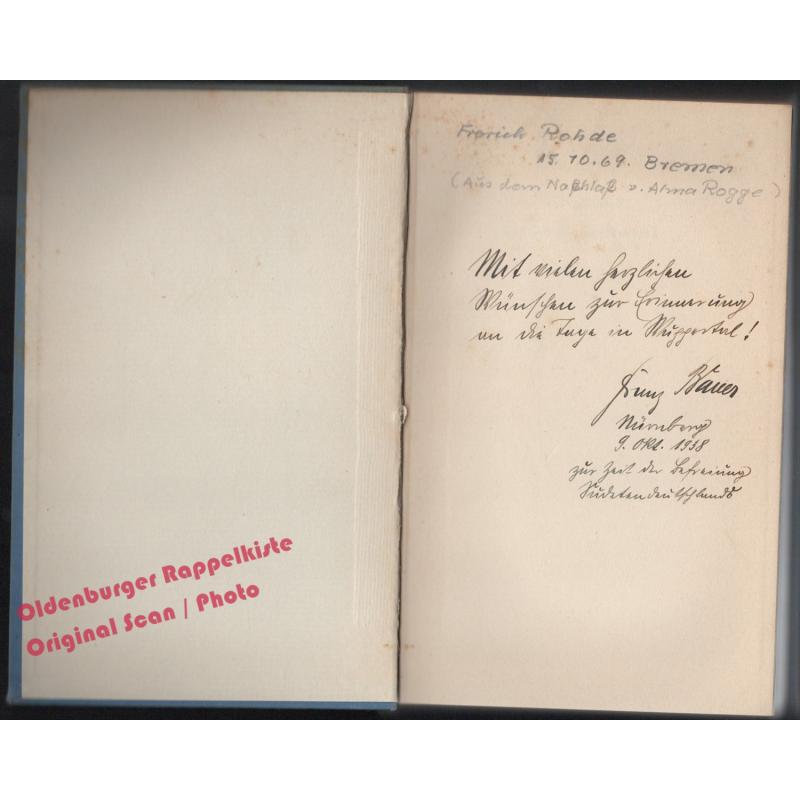 Oldenburger Rappelkiste
Original Scan / Photo
Frerich Rohde
15.10.69. Bremen
(Aus dem Nachlaß v. Alma Rogge)
Mit vielen herzlichen
Wünschen zur Erinnerung
an die Tage in Wuppertal!
Franz Bauer
Nürnberg
9. Okt. 1938
zur Zeit der Befreiung
Sudetendeutschlands